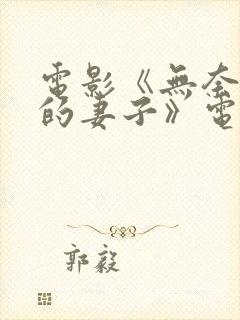 電影《無奈
的妻子》電
郭毅